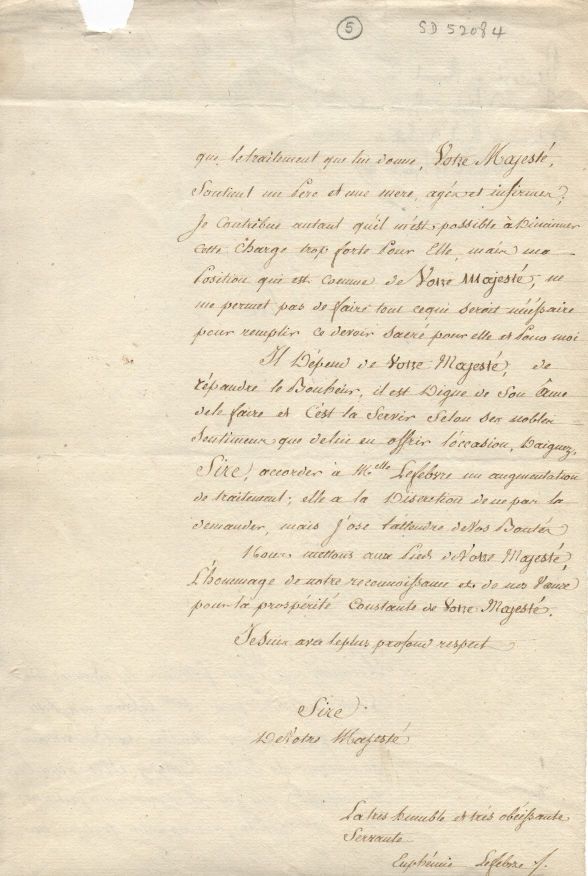 5 SD 52084
que le traitement que lui donne, Votre Majesté,
Soutient un Père et une mere, agés et infirmes;
Je Contribue autant qu'il m'est possible à Diminuer
cette Charge trop forte Pour Elle, mais ma
Position qui est connue de Votre Majesté, ne
me permet pas de faire tout cequi seroit nécéssaire
pour remplir ce devoir Sacré pour elle et Pour moi
Il Dépend de Votre Majesté, de
répandre le Bonheur, il est Digne de Son âme
dele faire et C'est la Servir Selon Ses nobles
Sentimens que delui en offrir l'occasion, Daignez,
Sire, accorder à Melle Lefebvre un augmentation
de traitement; elle a la Discretion de ne pas la
demander, mais J'ose l'attendre de Vos Bontés
Nous mettons aux Pieds de Votre Majesté,
L'hommage de notre reconnoissance et de nos Vœux
pour la prospérité Constante de Votre Majesté.
Je Suis avec leplus profond respect
Sire
De Votre Majesté
La très humble et très obéissante
Servante
Euphémie Lefebvre